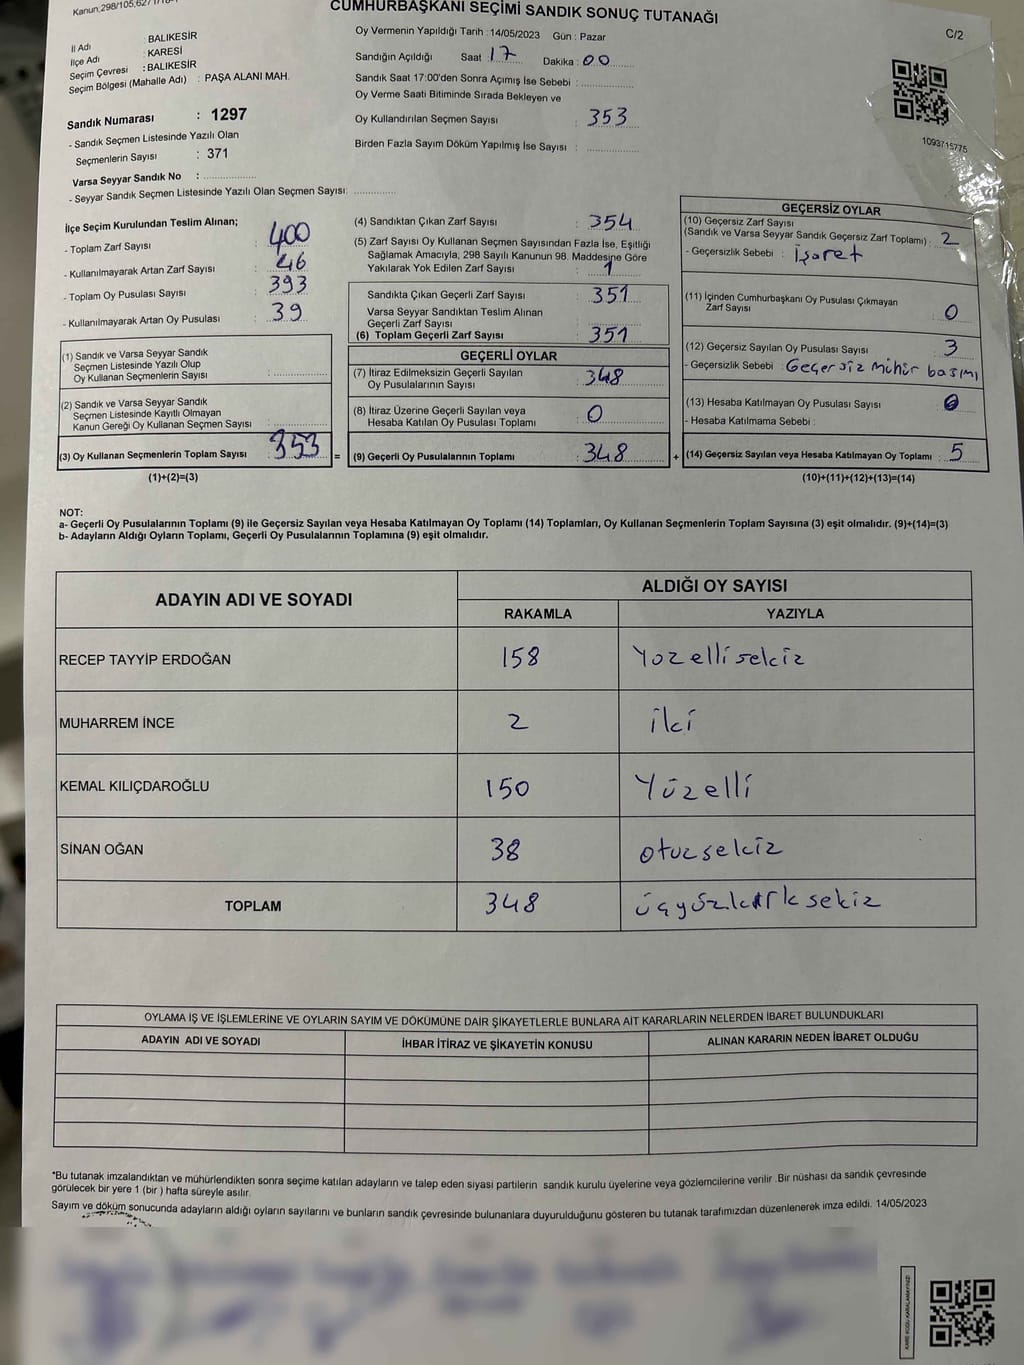 Kanun,298/105,62
CUMHURBAŞKANI SEÇİMİ SANDIK SONUÇ TUTANAĞI
C/2
İl Adı : BALIKESİR
İlçe Adı : KARESİ
Seçim Çevresi : BALIKESİR
Seçim Bölgesi (Mahalle Adı) : PAŞA ALANI MAH.
Sandık Numarası : 1297
- Sandık Seçmen Listesinde Yazılı Olan
Seçmenlerin Sayısı : 371
Varsa Seyyar Sandık No :
- Seyyar Sandık Seçmen Listesinde Yazılı Olan Seçmen Sayısı:
Oy Vermenin Yapıldığı Tarih : 14/05/2023 Gün : Pazar
Sandığın Açıldığı Saat : 17 Dakika : 00
Sandık Saat 17:00'den Sonra Açımış İse Sebebi :
Oy Verme Saati Bitiminde Sırada Bekleyen ve
Oy Kullandırılan Seçmen Sayısı : 353
Birden Fazla Sayım Döküm Yapılmış İse Sayısı :
1093715775
İlçe Seçim Kurulundan Teslim Alınan;
- Toplam Zarf Sayısı : 400
- Kullanılmayarak Artan Zarf Sayısı : 46
- Toplam Oy Pusulası Sayısı : 393
- Kullanılmayarak Artan Oy Pusulası : 39
(1) Sandık ve Varsa Seyyar Sandık
Seçmen Listesinde Yazılı Olup
Oy Kullanan Seçmenlerin Sayısı :
(2) Sandık ve Varsa Seyyar Sandık
Seçmen Listesinde Kayıtlı Olmayan
Kanun Gereği Oy Kullanan Seçmen Sayısı :
(3) Oy Kullanan Seçmenlerin Toplam Sayısı : 353 =
(1)+(2)=(3)
(4) Sandıktan Çıkan Zarf Sayısı : 354
(5) Zarf Sayısı Oy Kullanan Seçmen Sayısından Fazla İse, Eşitliği
Sağlamak Amacıyla, 298 Sayılı Kanunun 98. Maddesine Göre
Yakılarak Yok Edilen Zarf Sayısı : 1
Sandıkta Çıkan Geçerli Zarf Sayısı : 351
Varsa Seyyar Sandıktan Teslim Alınan
Geçerli Zarf Sayısı :
(6) Toplam Geçerli Zarf Sayısı : 351
GEÇERLİ OYLAR
(7) İtiraz Edilmeksizin Geçerli Sayılan
Oy Pusulalarının Sayısı : 348
(8) İtiraz Üzerine Geçerli Sayılan veya
Hesaba Katılan Oy Pusulası Toplamı : 0
(9) Geçerli Oy Pusulalarının Toplamı : 348 +
GEÇERSİZ OYLAR
(10) Geçersiz Zarf Sayısı
(Sandık ve Varsa Seyyar Sandık Geçersiz Zarf Toplamı) : 2
- Geçersizlik Sebebi : İşaret
(11) İçinden Cumhurbaşkanı Oy Pusulası Çıkmayan
Zarf Sayısı : 0
(12) Geçersiz Sayılan Oy Pusulası Sayısı : 3
- Geçersizlik Sebebi : Geçersiz mühür basımı
(13) Hesaba Katılmayan Oy Pusulası Sayısı : 0
- Hesaba Katılmama Sebebi :
(14) Geçersiz Sayılan veya Hesaba Katılmayan Oy Toplamı : 5
(10)+(11)+(12)+(13)=(14)
NOT:
a- Geçerli Oy Pusulalarının Toplamı (9) ile Geçersiz Sayılan veya Hesaba Katılmayan Oy Toplamı (14) Toplamları, Oy Kullanan Seçmenlerin Toplam Sayısına (3) eşit olmalıdır. (9)+(14)=(3)
b- Adayların Aldığı Oyların Toplamı, Geçerli Oy Pusulalarının Toplamına (9) eşit olmalıdır.
ADAYIN ADI VE SOYADI
ALDIĞI OY SAYISI
RAKAMLA YAZIYLA
RECEP TAYYİP ERDOĞAN 158 Yüzellisekiz
MUHARREM İNCE 2 iki
KEMAL KILIÇDAROĞLU 150 Yüzelli
SİNAN OĞAN 38 otuzsekiz
TOPLAM 348 üçyüzkırksekiz
OYLAMA İŞ VE İŞLEMLERİNE VE OYLARIN SAYIM VE DÖKÜMÜNE DAİR ŞİKAYETLERLE BUNLARA AİT KARARLARIN NELERDEN İBARET BULUNDUKLARI
ADAYIN ADI VE SOYADI İHBAR İTİRAZ VE ŞİKAYETİN KONUSU ALINAN KARARIN NEDEN İBARET OLDUĞU
*Bu tutanak imzalandıktan ve mühürlendikten sonra seçime katılan adayların ve talep eden siyasi partilerin sandık kurulu üyelerine veya gözlemcilerine verilir. Bir nüshası da sandık çevresinde
görülecek bir yere 1 (bir ) hafta süreyle asılır.
Sayım ve döküm sonucunda adayların aldığı oyların sayılarını ve bunların sandık çevresinde bulunanlara duyurulduğunu gösteren bu tutanak tarafımızdan düzenlenerek imza edildi. 14/05/2023
KARE KODU KARALAMAYINIZ!